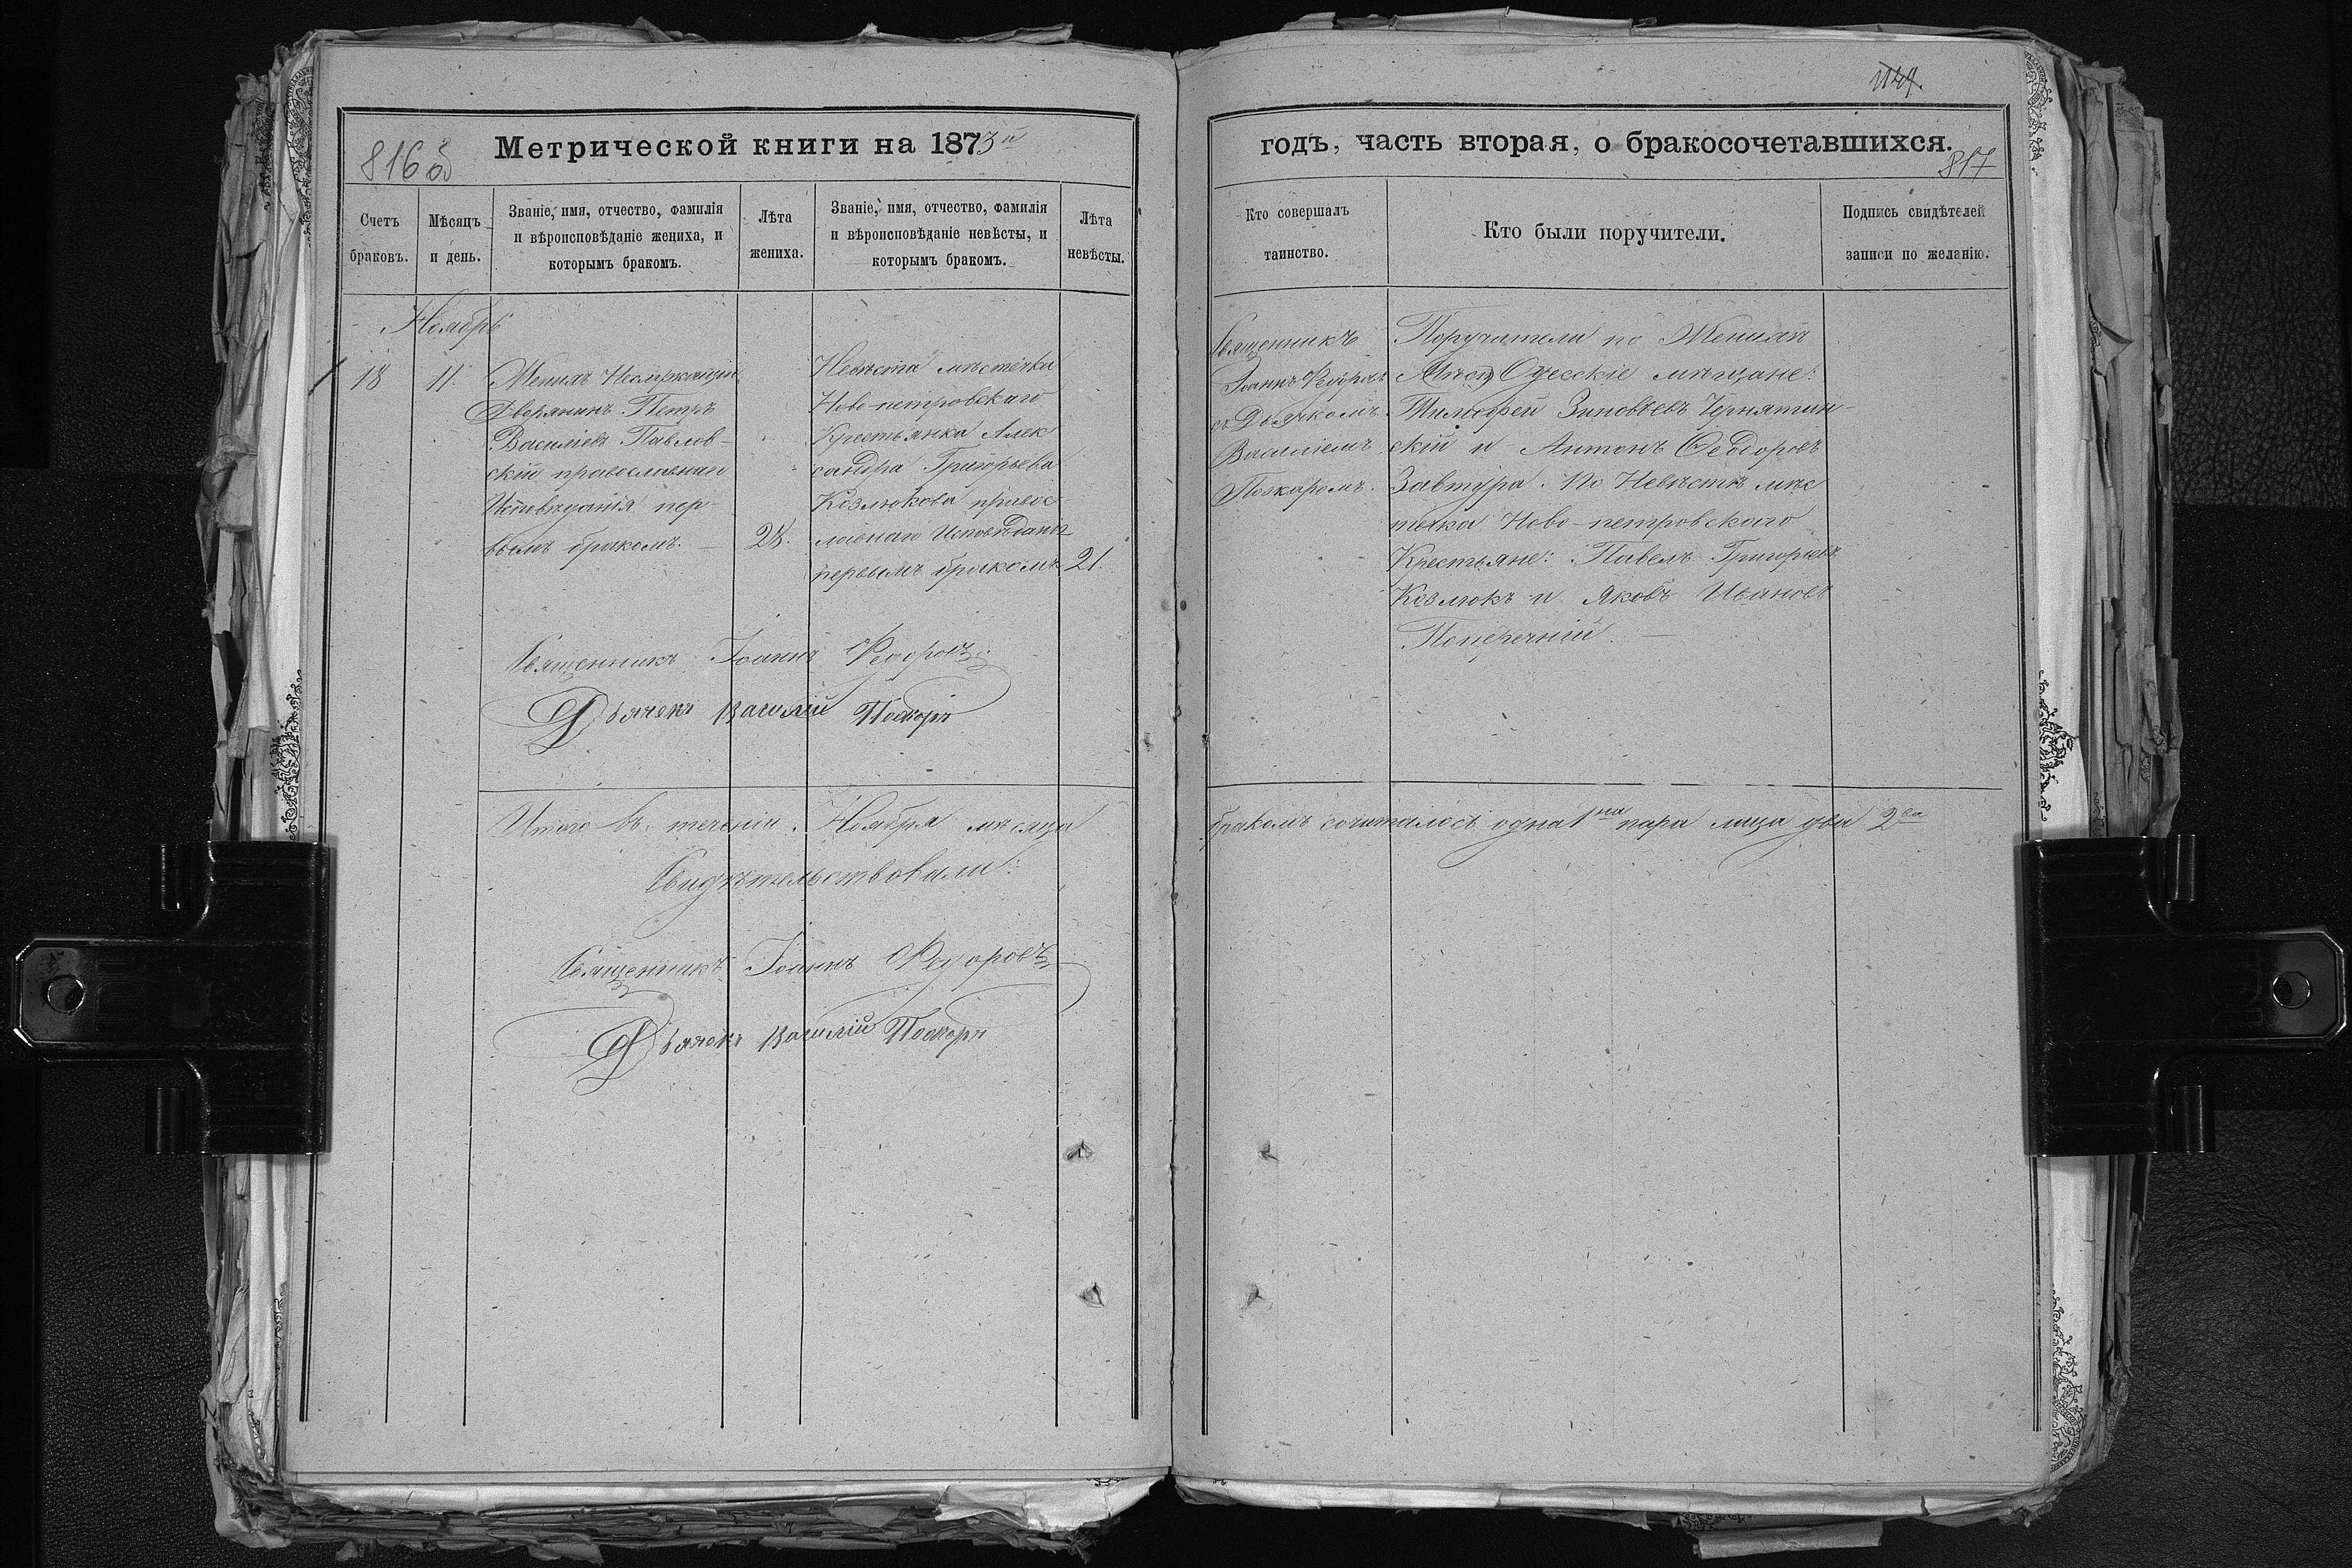 816 об
Метрической книги на 1873й
Счетъ браковъ.
Мѣсяцъ и день.
Званіе, имя, отчество, фамилія и вѣроисповѣданіе жениха, и которымъ бракомъ.
Лѣта жениха.
Званіе, имя, отчество, фамилія и вѣроисповѣданіе невѣсты, и которымъ бракомъ.
Лѣта невѣсты.
Ноябрь
18
11.
Женихъ
Дворянинъ Петръ
Василіевъ Павлов-
скій православнаго
Исповѣданія пер-
вымъ бракомъ. —
28.
Невѣста мѣстечка
Ново-петровскаго
Крестьянка Алек
сандра Григорьева
Козлюкова правос-
лавнаго Исповѣданія
первымъ бракомъ
21.
Священникъ Іоаннъ Федоровъ
Дьячекъ Василій Поскоръ
Итого въ теченіи Ноября мѣсяца
Свидѣтельствовали:
Священникъ Іоаннъ Федоровъ
Дьячекъ Василій Поскоръ
1149.
годъ, часть вторая, о бракосочетавшихся.
817
Кто совершалъ таинство.
Кто были поручители.
Подпись свидѣтелей записи по желанію.
Священникъ
Іоаннъ Федоровъ
съ Дьячкомъ
Василіемъ
Поскаромъ.
Поручители по Женихѣ
Одесскіе мѣщане:
Тимофей Зиновьевъ Чернятин-
скій и Антонъ Феодоровъ
Завтура. По Невѣстѣ мѣс
течка Ново-петровскаго
Крестьяне: Павелъ Григорьевъ
Козлюкъ и Яковъ Ивановъ
Поперечній. —
бракомъ сочиталось одна 1на пара лица два 2ва